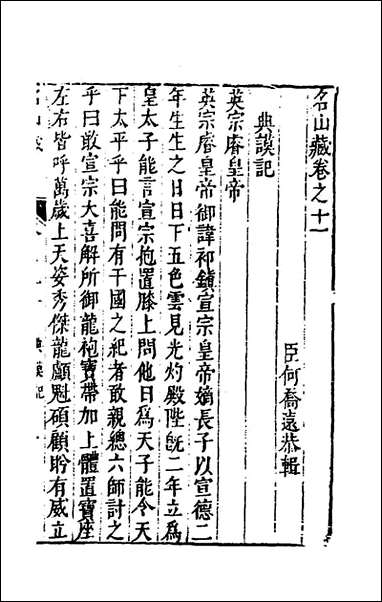 名山藏卷之十一
臣何喬遠恭輯
典謨記
英宗睿皇帝
英宗睿皇帝御諱祁鎮宣宗皇帝嫡長子以宣德二
年生生之日日下五色雲見光灼殿陛既二年立為
皇太子能言宣宗抱置膝上問他日為天子能令天
下太平乎曰能問有干國之紀者敢親總六師討之
乎曰敢宣宗大喜解所御龍袍寶帶加上體置寶座
左右皆呼萬歲上天姿秀傑龍顱魁碩顧盼有威立
典謨記